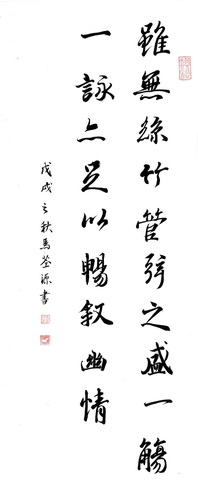 雖無絲竹管弦之盛一觴
一詠亦足以暢叙幽情
戊戌之秋馬荃源書